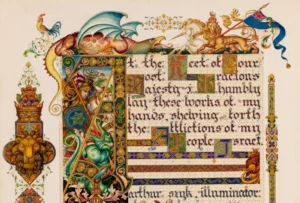 t, the feet of your
most gracious
majesty i humbly
lay these works of my
hands, shewing forth
the afflictions of my
people israel.
arthur szyk, illuminator: